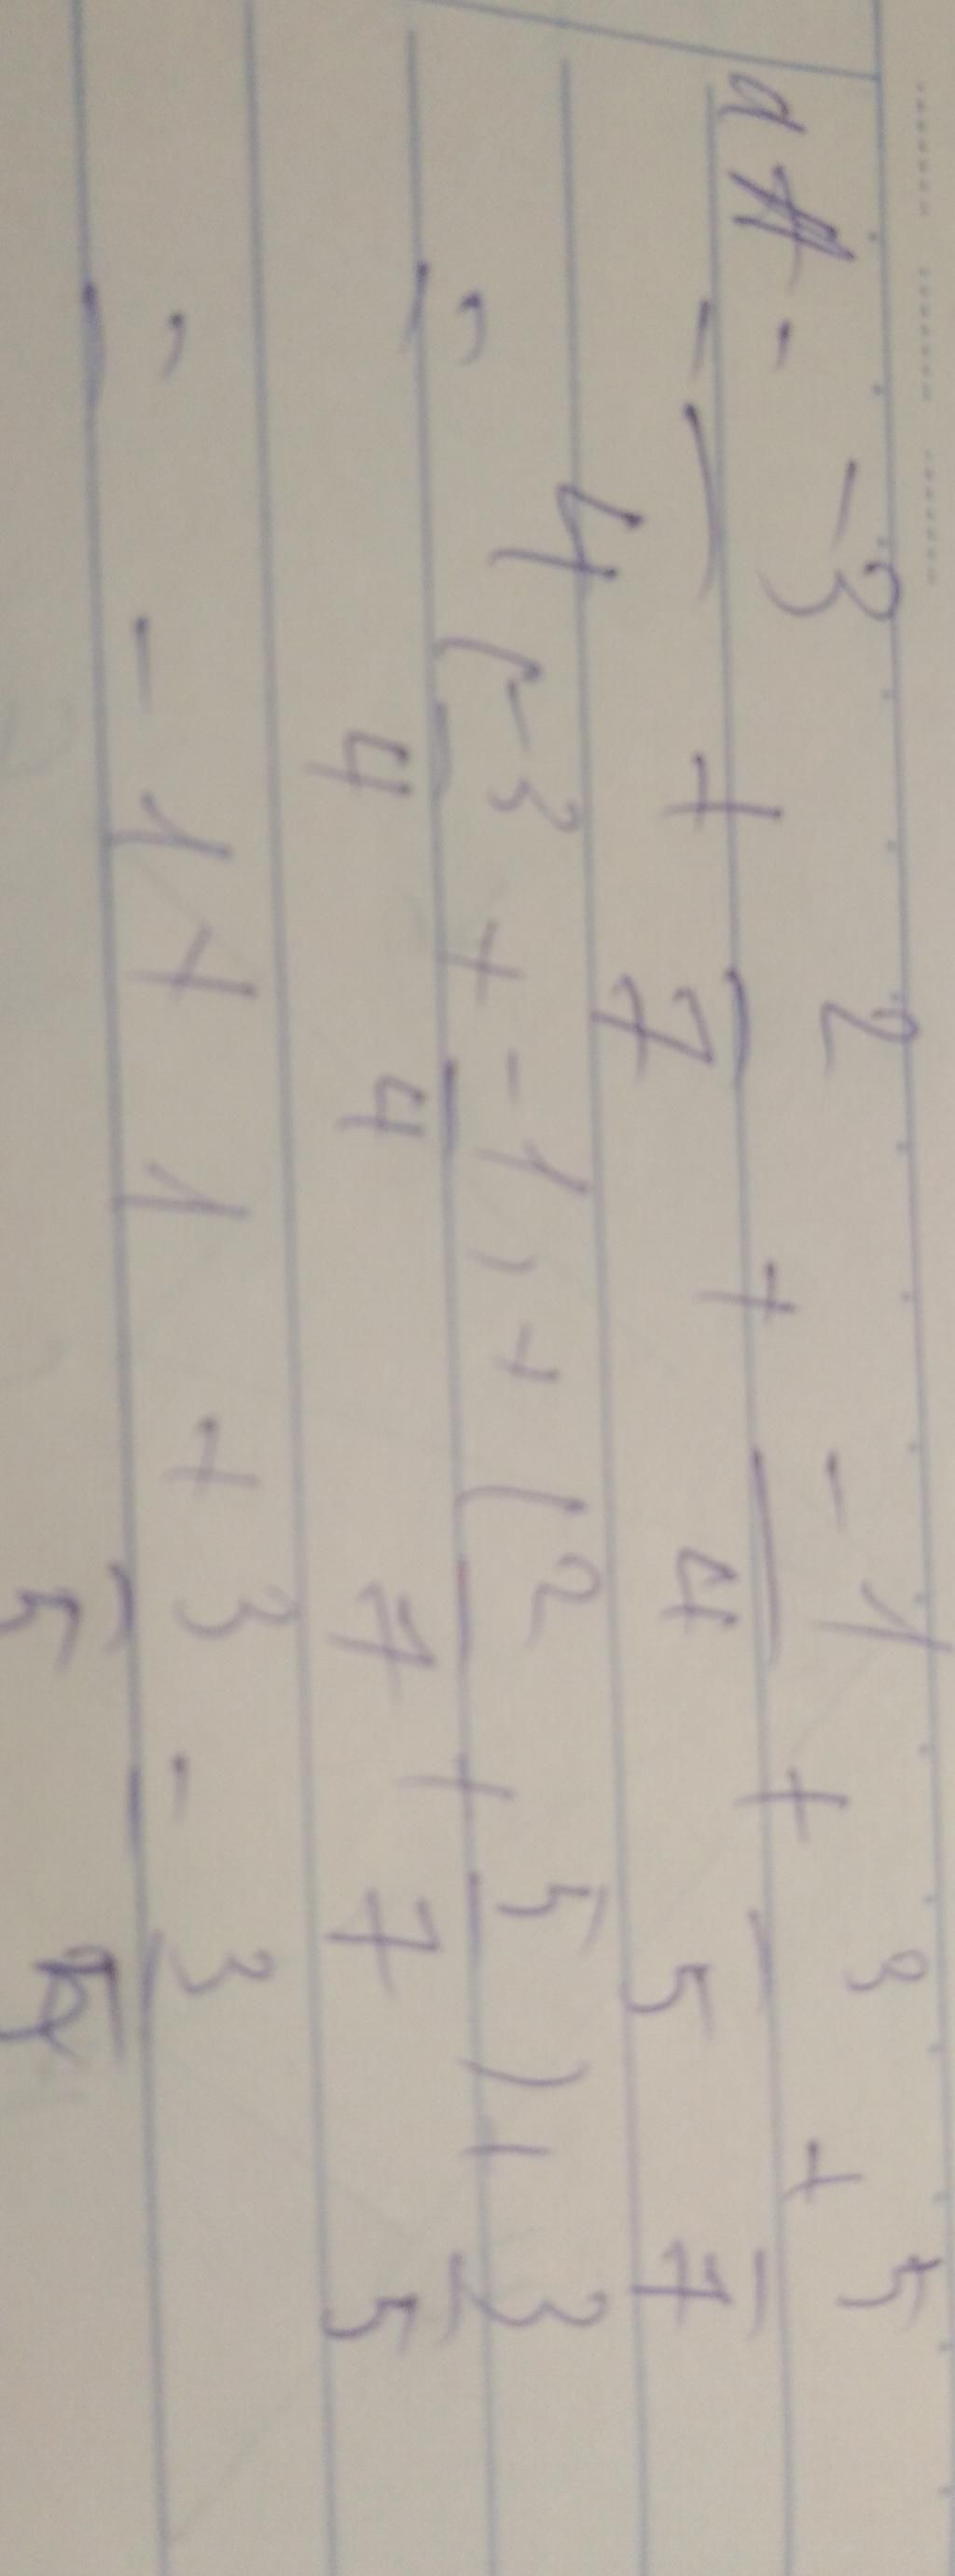 A = -3/4 + 2/7 + -1/4 + 3/5 + 5/7
= (-3/4 + -1/4) + (2/7 + 5/7) + 3/5
= -1 + 1 + 3/5 = 3/5